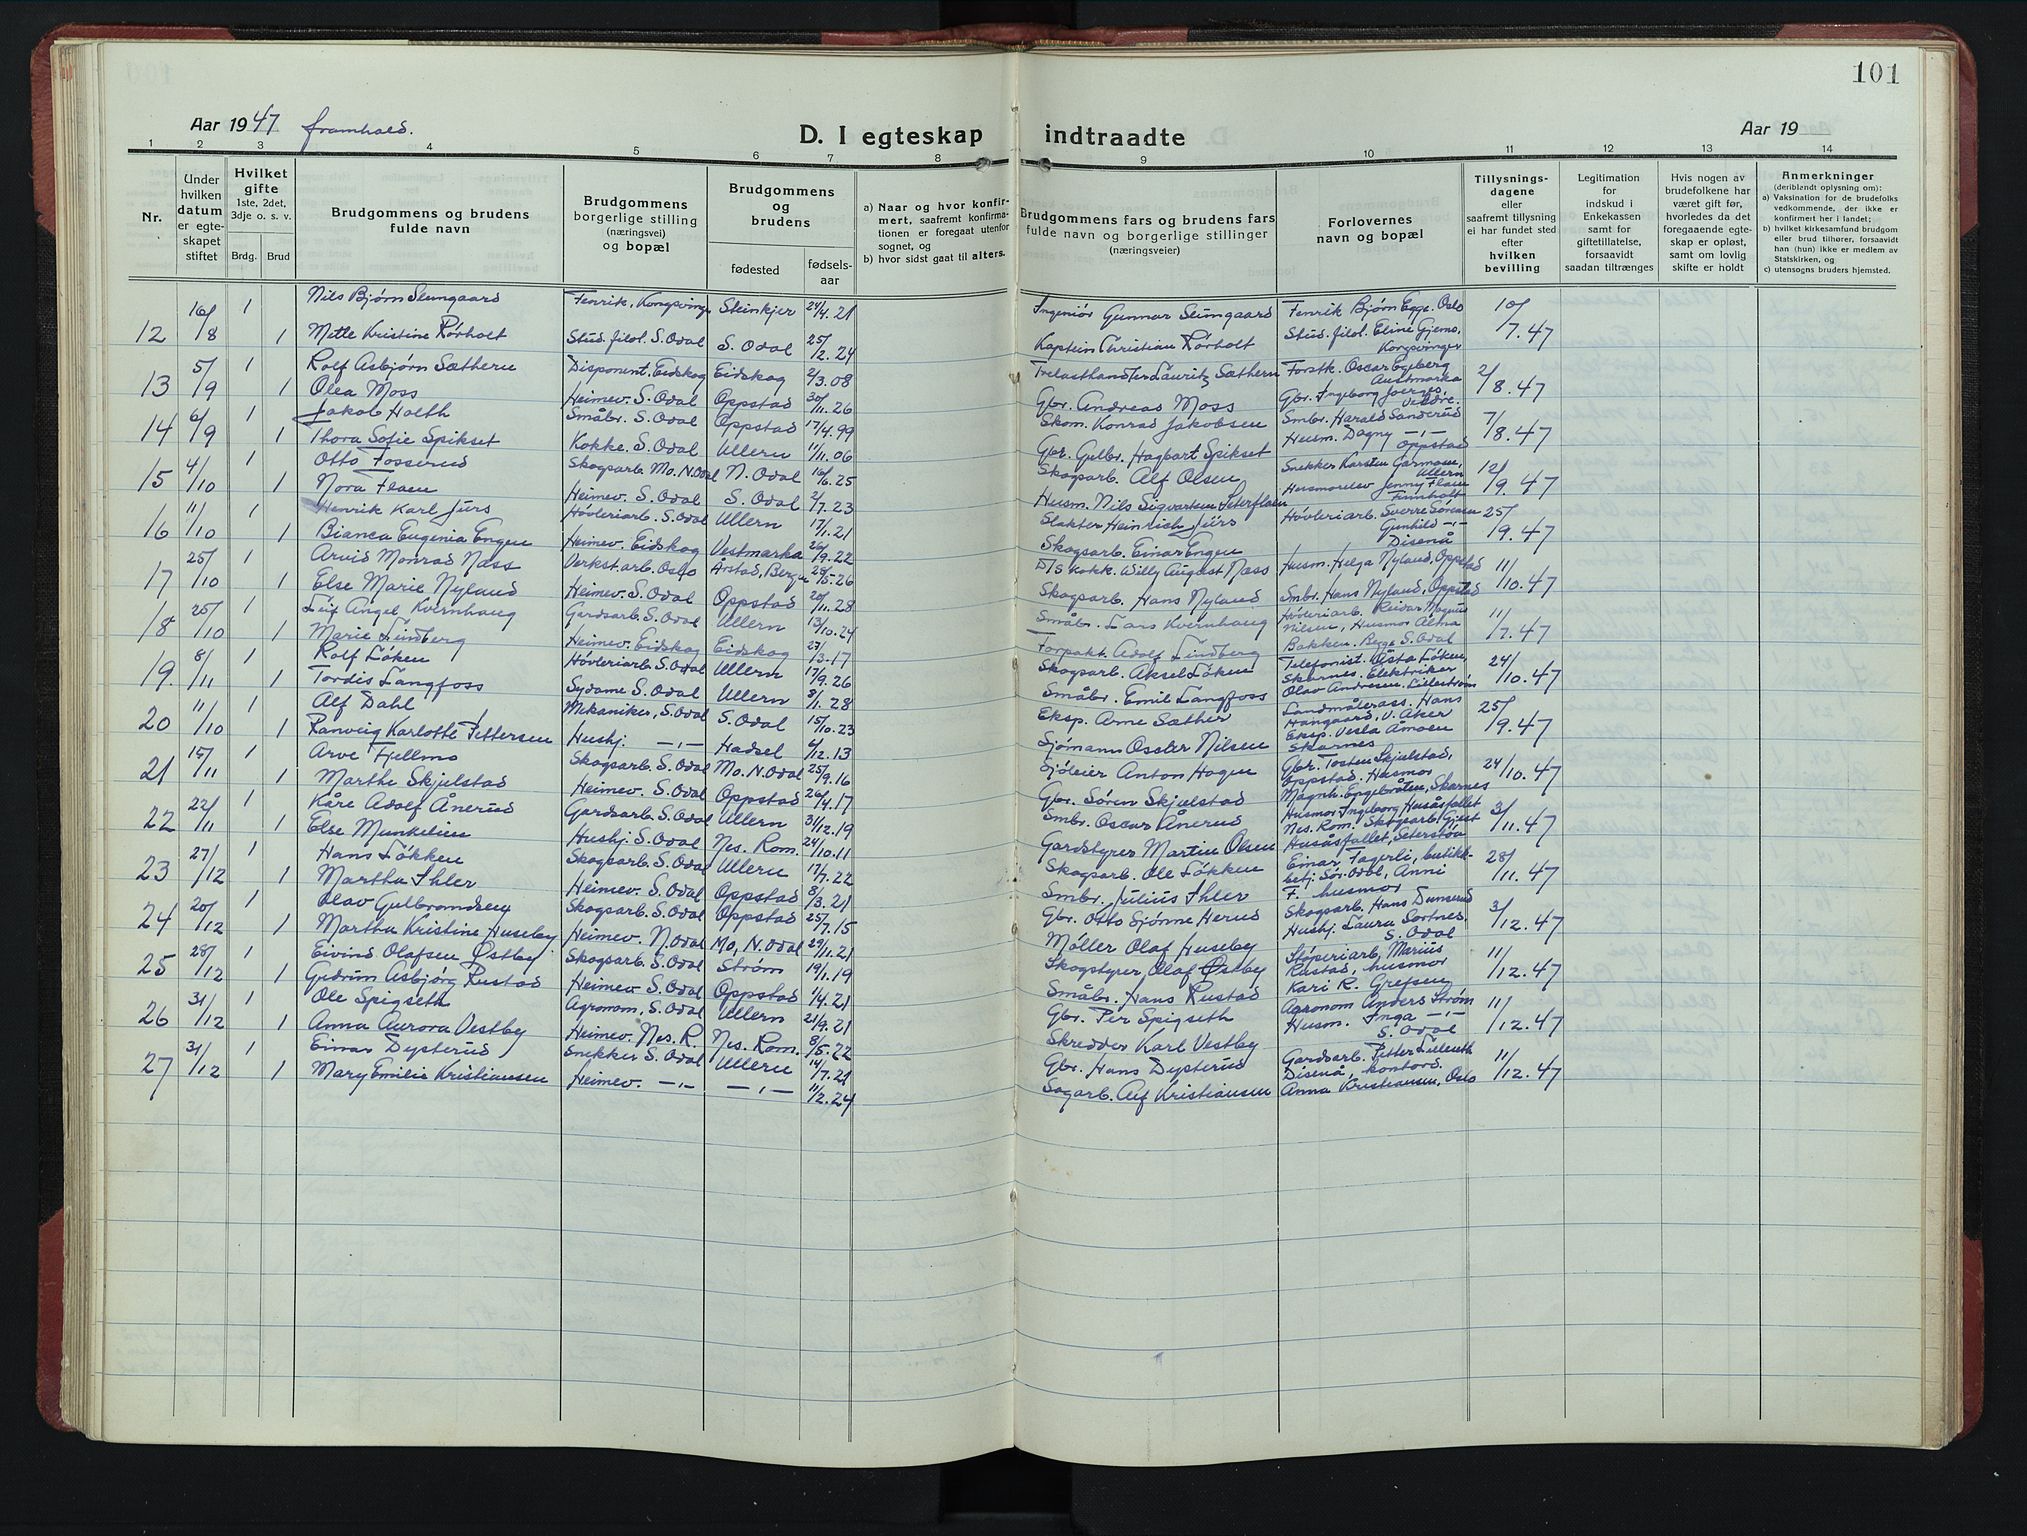 101
Aar 1947 framhald.
D. I egteskap indtraadte
Aar 19
1 2 3 4 5 6 7 8 9 10 11 12 13 14
Nr.
Under hvilken datum er egteskapet stiftet
Hvilket gifte 1ste, 2det, 3dje o. s. v.
Brdg. Brud
Brudgommens og brudens fulde navn
Brudgommens borgerlige stilling (næringsvei) og bopæl
Brudgommens og brudens
fødested
fødsels-aar
a) Naar og hvor konfirmert, saafremt konfirmationen er foregaat utenfor sognet, og
b) hvor sidst gaat til alters.
Brudgommens fars og brudens fars fulde navn og borgerlige stillinger (næringsveier)
Forlovernes navn og bopæl
Tillysningsdagene eller saafremt tillysning ei har fundet sted efter hvilken bevilling
Legitimation for indskud i Enkekassen samt for giftetillatelse, forsaavidt saadan tiltrænges
Hvis nogen av brudefolkene har været gift før, hvorledes da det foregaaende egteskap er opløst, samt om lovlig skifte er holdt
Anmerkninger (deriblandt oplysning om):
a) Vaksination for de brudefolks vedkommende, der ikke er konfirmert her i landet;
b) hvilket kirkesamfund brudgom eller brud tilhører, forsaavidt han (hun) ikke er medlem av Statskirken, og
c) utensogns bruders hjemsted.
12 16/8 1 Nils Bjørn Slungaard Fenrik, Kongsvinger Steinkjer 24/4.21 Ingeniør Gunnar Slungaard Fenrik Bjørn Egge. Oslo 10/7.47
1 Mette Kristine Rørholt Stud. filol. S. Odal S. Odal 25/2.24 Kaptein Christian Rørholt Stud. filol. Eline Gjems, Kongsvinger
13 5/9 1 Rolf Asbjørn Sætheru Disponent, Eidskog Eidskog 2/3.08 Trelasthandler Lauritz Sætheru Forstk. Oscar Egeberg Austmarka 2/8.47
1 Olea Moss Heimev. S. Odal Oppstad 30/11.26 Gbr. Andreas Moss Gbr. Ingeborg
14 6/9 1 Jakob Holth Småbr. S. Odal Oppstad 17/4.99 Skom. Konrad Jakobsen Smbr. Harald Sanderud 7/8.47
1 Thora Sofie Spikset Kokke. S. Odal Ullern 1/11.06 Gbr. Gulbr. Hagbart Spikset Husm. Dagny -"- Oppstad
15 4/10 1 Otto Fosserud Skogsarb. Mo. N. Odal N. Odal 16/6.25 Skogsarb. Alf Olsen Snekker Karsten Garmosen, Ullern 12/9.47
1 Nora Flaen Heimev. S. Odal S. Odal 2/7.23 Husm. Nils Sigvartsen Seterflaen Husmorelev Jenny Flaen
16 11/10 1 Henrik Karl Jürs Høvleriarb. S. Odal Ullern 17/1.21 Slakter Heinrich Jürs Høvleriarb. Sverre Sørensen 25/9.47
1 Bianca Eugenia Engen Heimev. Eidskog Vestmarka 26/9.22 Skogsarb. Einar Engen Gunhild -"- Disenå
17 25/10 1 Arvid Monrad Næss Verkst.arb. Oslo Årstad, Bergen 28/5.26 D/S kokk. Willy August Næss Husm. Helga Nyland, Oppstad 11/10.47
1 Else Marie Nyland Heimev. S. Odal Oppstad 20/11.28 Skogsarb. Hans Nyland Smbr. Hans Nyland, Oppstad
18 25/10 1 Leif Angel Kvernhaug Gardsarb. S. Odal Ullern 13/10.24 Småbr. Lars Kvernhaug Høvleriarb. Reidar Magnus Nilsen, Husmor Alma 11/7.47
1 Marie Lindberg Heimev. Eidskog Eidskog 27/3.17 Forpakt. Adolf Lindberg Bakken. Berge S. Odal
19. 8/11 1 Rolf Løken Høvleriarb. S. Odal Ullern 17/9.26 Skogsarb. Aksel Løken Telefonist. Åsta Løken, Skarnes. Elektriker 24/10.47
1 Tordis Langfoss Sydame S. Odal Ullern 8/1.28 Småbr. Emil Langfoss Olav Andresen, Lillestrøm
20 11/10 1 Alf Dahl Mekaniker, S. Odal S. Odal 15/10.23 Eksp. Arne Sæther Landmålerass. Hans Haugaard, V. Aker 25/9.47
1 Ranveig Karlotte Pettersen Hushj. -"- Hadsel 4/12.13 Sjømann Oscler Nilsen Eksp. Vesla Åmoen Skarnes
21 15/11 1 Arve Fjellmo Skogsarb. S. Odal Mo. N. Odal 25/9.16 Sjøleier Anton Hagen Gbr. Tosten Skjelstad, Oppstad. Husmor 24/10.47
1 Marthe Skjelstad Heimev. S. Odal Oppstad 26/4.17 Gbr. Søren Skjelstad Magnh. Engebråten, Skarnes
22 22/11 1 Kåre Adolf Ånerud Gardsarb. S. Odal Ullern 31/12.19 Smbr. Oscar Ånerud Husmor Ingeborg Husåsfallet Nes. Rom. Skogsarb. 3/11.47
1 Else Munkelien Hushj. S. Odal Nes. Rom. 24/10.11 Gardstyrer Martin Olsen Husåsfallet, Seterstøa
23 27/12 1 Hans Løkken Skogsarb. S. Odal Ullern 17/7.22 Skogsarb. Ole Løkken Einar Fagerli, butikkbetj. Sør-Odal, Anni 28/11.47
1 Martha Ihler Heimev. S. Odal Oppstad 8/3.21 Smbr. Julius Ihler F. husmor
24 20/12 1 Olav Gulbrandsen Skogsarb. S. Odal Oppstad 25/7.15 Gbr. Otto Sjønne Herud Skogsarb. Hans Dunserud 3/12.47
1 Martha Kristine Huseby Heimev. N. Odal Mo, N. Odal 29/11.21 Møller Olaf Huseby Hushj. Laura Sortnes. S. Odal
25 28/12 1 Eivind Olafsen Østby Skogsarb. S. Odal Strøm 19/1.19 Skogstyrer, Olaf Østby Støperiarb. Marius Rustad, husmor 11/12.47
1 Gudrun Asbjørg Rustad Heimev. S. Odal Oppstad 1/4.21 Småbr. Hans Rustad Kari R. Grefsen
26 31/12 1 Ole Spigseth Agronom, S. Odal Ullern 21/9.21 Gbr. Per Spigseth Agronom Anders Strøm 11/12.47
1 Anna Aurora Vestby Heimev. Nes. R. Nes. Rom. 8/5.22 Skredder Karl Vestby Husm. Inga -"- S. Odal
27 31/12 1 Einar Dysterud Snekker S. Odal Ullern 14/7.21 Gbr. Hans Dysterud Gardsarb. Petter Lilleseth Disenå, kontord. 11/12.47
1 Mary Emilie Kristiansen Heimev. -"- -"- 11/2.24 Sagarb. Alf Kristiansen Anna Kristiansen, Oslo